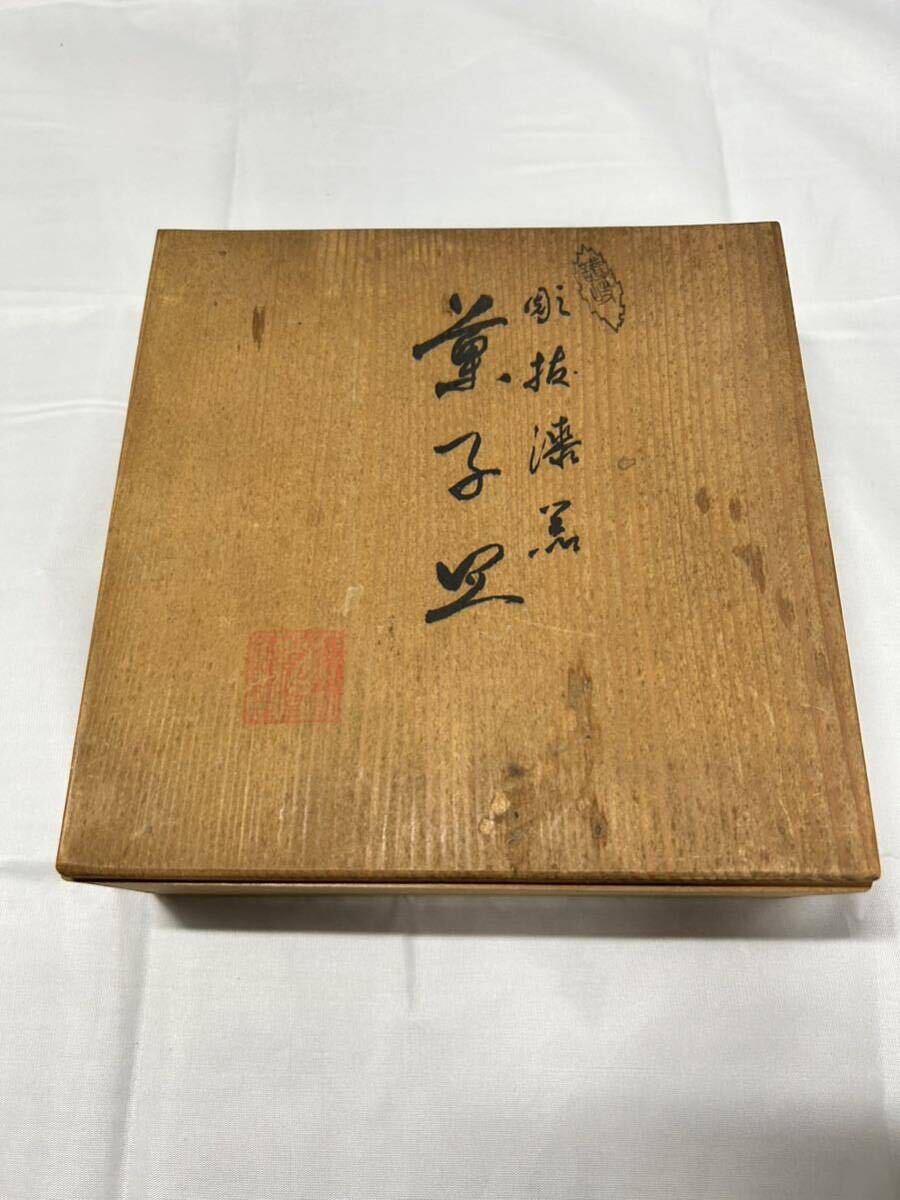 讃岐
彫抜漆器
菓子皿